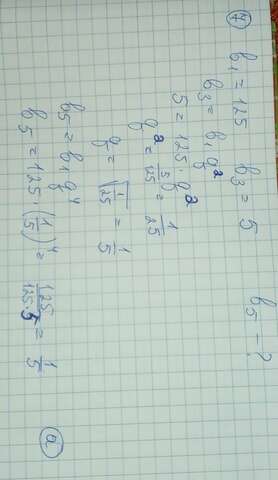 ④ b₁ = 125 b₃ = 5 b₅ - ?
b₃ = b₁q²
5 = 125 · q²
q² = 5/125 = 1/25
q = √(1/25) = 1/5
b₅ = b₁q⁴
b₅ = 125 · (1/5)⁴ = 125/(125·5) = 1/5
ⓐ